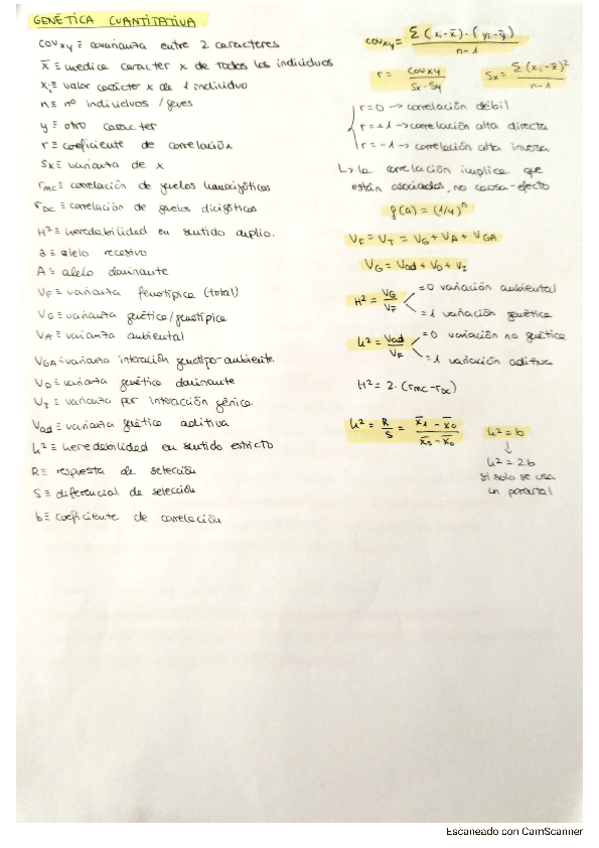 GENÉTICA CUANTITATIVA
covxy ≡ covarianza entre 2 caracteres
x̄ ≡ media caracter x de todos los individuos
xi ≡ valor carácter x de 1 individuo
n ≡ nº individuos / genes
y ≡ otro caracter
r ≡ coeficiente de correlación
Sx ≡ varianza de x
rmc ≡ correlación de gemelos monocigóticos
rDC ≡ correlación de gemelos dicigóticos
H² ≡ heredabilidad en sentido amplio.
a ≡ alelo recesivo
A ≡ alelo dominante
VF ≡ varianza fenotípica (total)
VG ≡ varianza genética/genotípica
VA ≡ varianza ambiental
VGA ≡ varianza interacción genotipo-ambiente
VD ≡ varianza genética dominante
VI ≡ varianza por interacción génica
Vad ≡ varianza genética aditiva
h² ≡ heredabilidad en sentido estricto
R ≡ respuesta de selección
S ≡ diferencial de selección
b ≡ coeficiente de correlación
covxy = Σ(xi-x̄)·(yi-ȳ) / n-1
r = covxy / Sx·Sy
Sx = Σ(xi-x̄)² / n-1
r=0 → correlación débil
r=+1 → correlación alta directa
r=-1 → correlación alta inversa
↳ la correlación implica que
están asociados, no causa-efecto
f(a) = (1/4)ⁿ
VF = VT = VG + VA + VGA
VG = Vad + VD + VI
H² = VG / VF
=0 variación ambiental
=1 variación genética
h² = Vad / VF
=0 variación no genética
=1 variación aditiva
H² = 2·(rmc-rDC)
h² = R / S = x̄1 - x̄0 / x̄s - x̄0
h² = b
↓
h² = 2b
si solo se usa
un parental
Escaneado con CamScanner